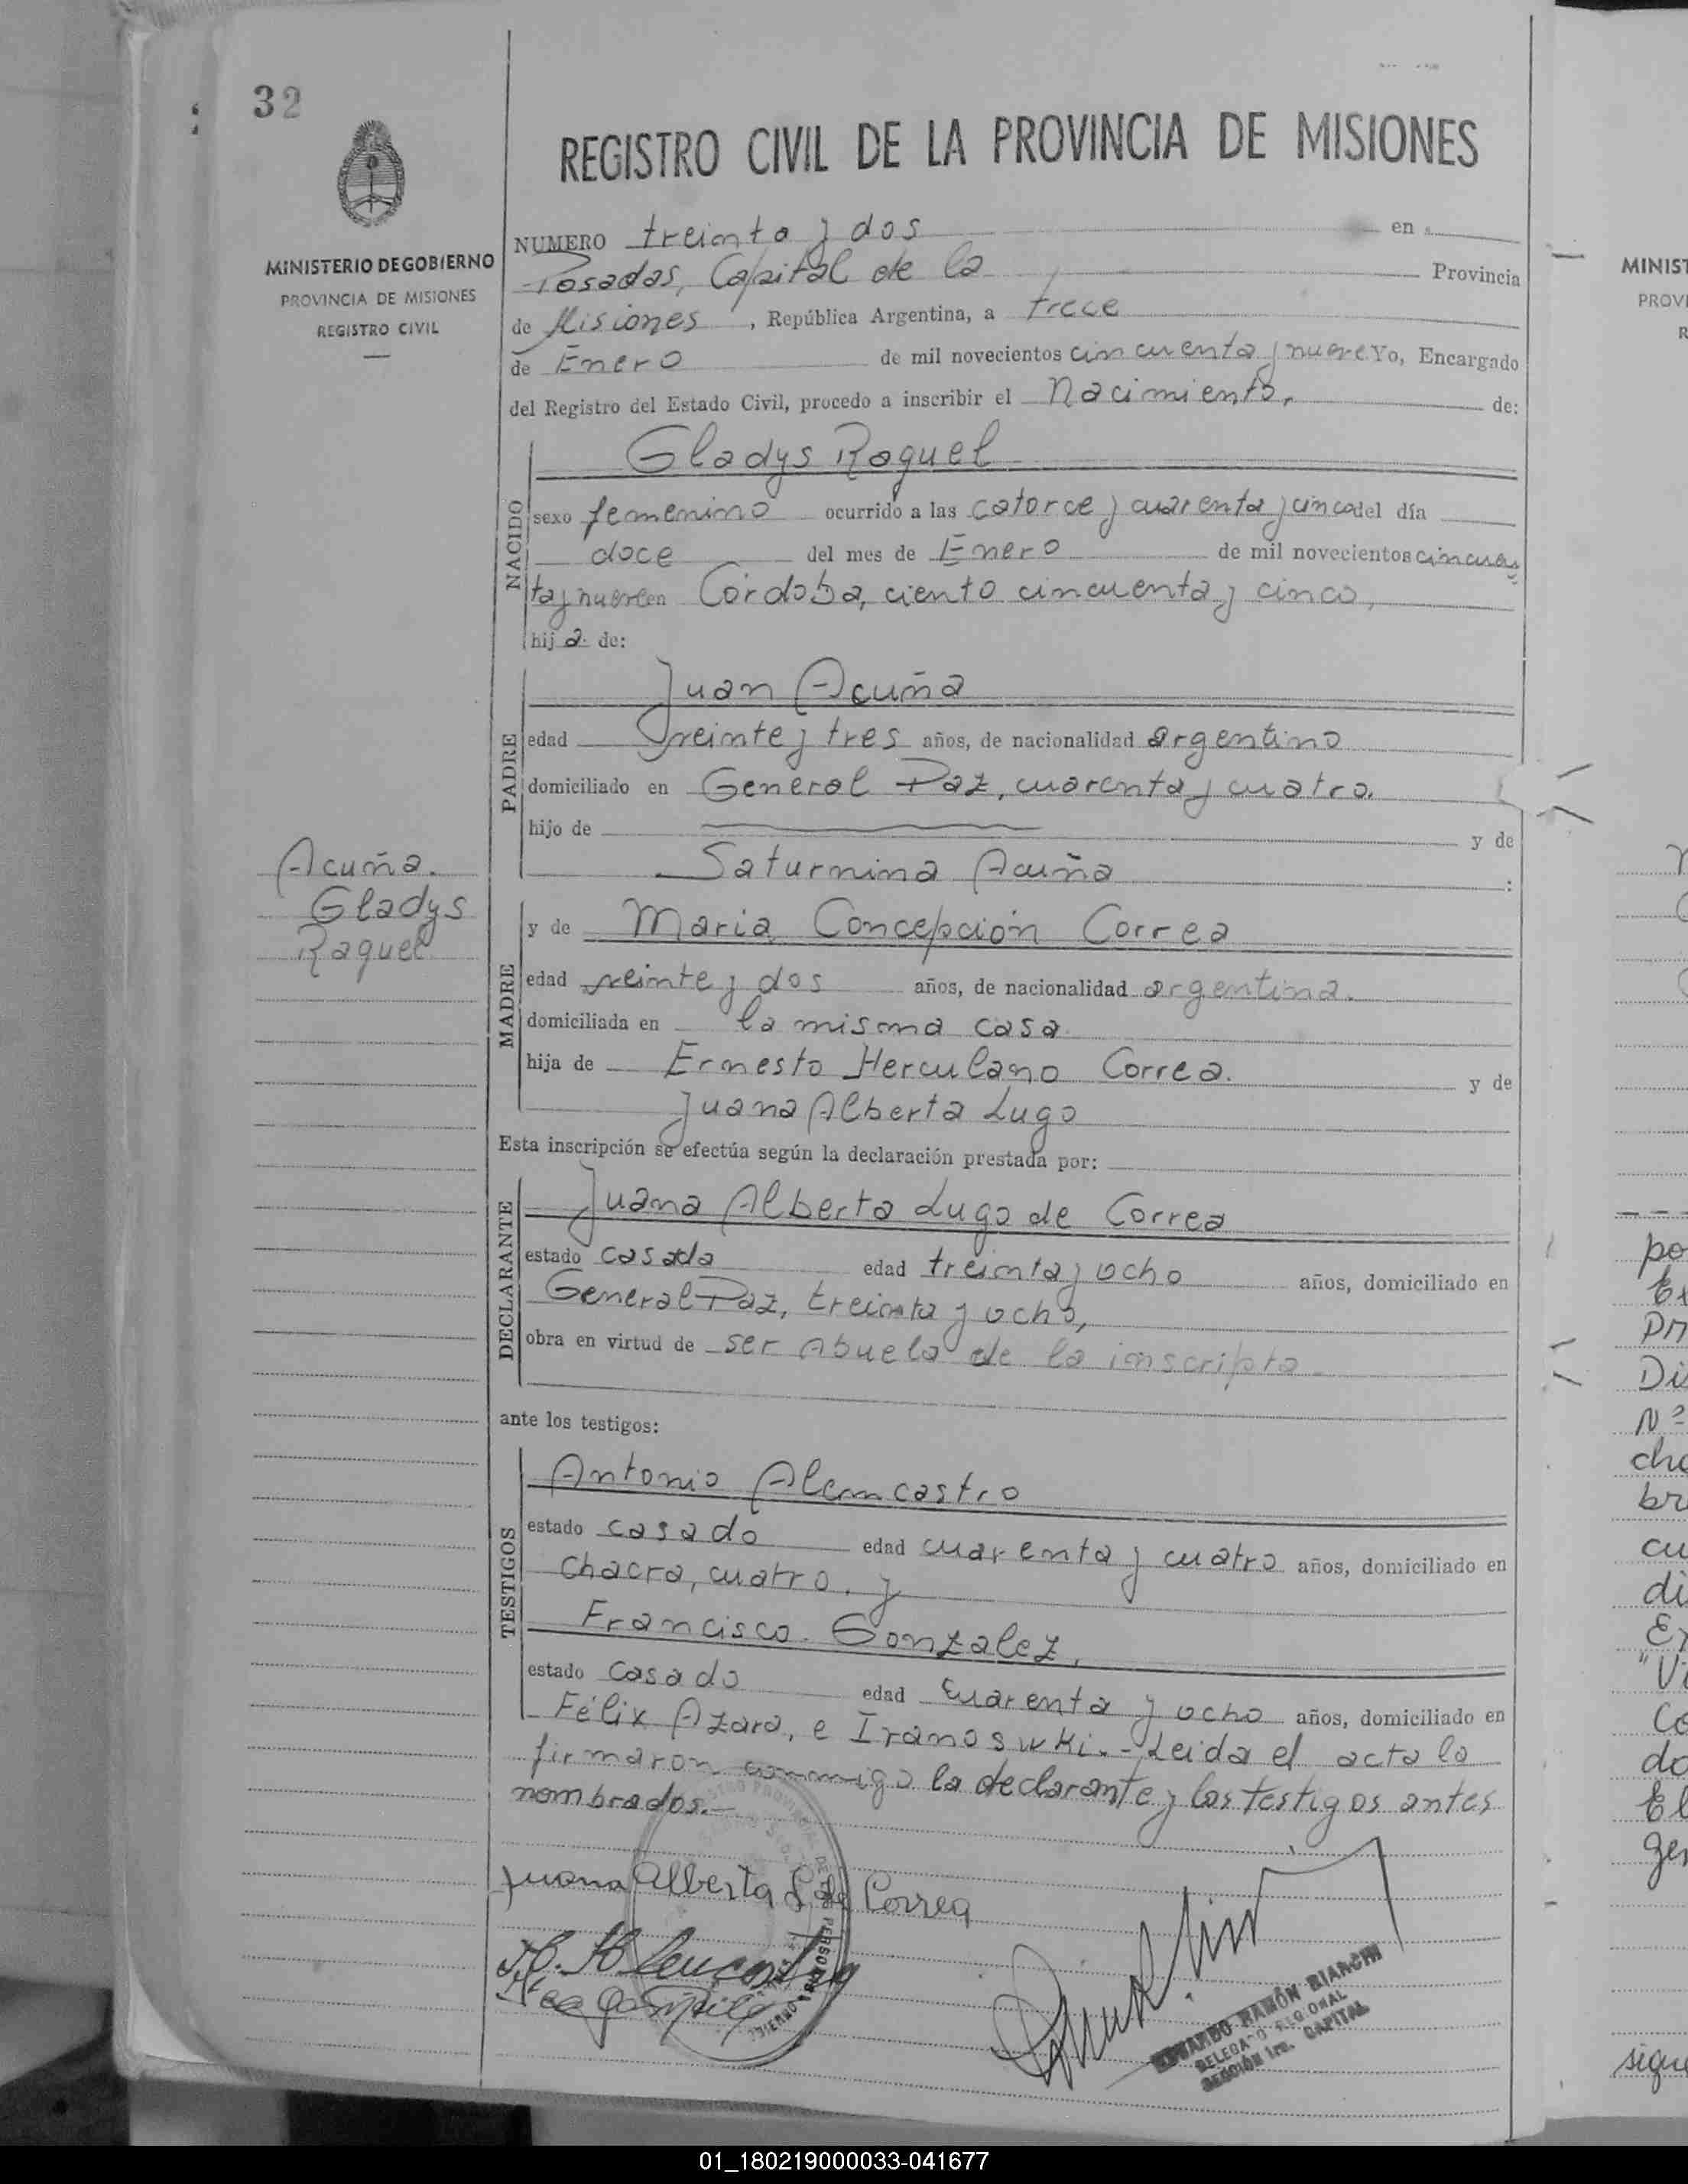 32
REGISTRO CIVIL DE LA PROVINCIA DE MISIONES
MINISTERIO DE GOBIERNO
PROVINCIA DE MISIONES
REGISTRO CIVIL
NUMERO treinta y dos en
Posadas, Capital de la Provincia
de Misiones, República Argentina, a trece
de Enero de mil novecientos cincuenta y nueve Yo, Encargado
del Registro del Estado Civil, procedo a inscribir el Nacimiento, de:
NACIDO
Gladys Raquel
sexo femenino ocurrido a las catorce y cuarenta y cinco del día
doce del mes de Enero de mil novecientos cincuen
ta y nueve en Córdoba, ciento cincuenta y cinco,
hija de:
PADRE
Juan Acuña
edad veinte y tres años, de nacionalidad argentino
domiciliado en General Paz, cuarenta y cuatro.
hijo de y de
Saturnina Acuña :
Acuña.
Gladys
Raquel
MADRE
y de Maria Concepción Correa
edad veinte y dos años, de nacionalidad argentina.
domiciliada en la misma casa
hija de Ernesto Herculano Correa. y de
Juana Alberta Lugo
Esta inscripción se efectúa según la declaración prestada por:
DECLARANTE
Juana Alberta Lugo de Correa
estado casada edad treinta y ocho años, domiciliado en
General Paz, treinta y ocho,
obra en virtud de ser Abuela de la inscripta
ante los testigos:
TESTIGOS
Antonio Alemcastro
estado casado edad cuarenta y cuatro años, domiciliado en
Chacra, cuatro, y
Francisco Gonzalez,
estado Casado edad cuarenta y ocho años, domiciliado en
Félix Azara, e Iranoswki.- Leida el acta la
firmaron conmigo la declarante y los testigos antes
nombrados.-
Juana Alberta L de Correa
EDUARDO RAMÓN BIANCHI
DELEGADO REGIONAL
SECCIÓN 1ra. CAPITAL
MINIST
PROVI
R
po
Di
Nº
cho
br
cu
di
Co
do
El
ger
sigue
01_180219000033-041677